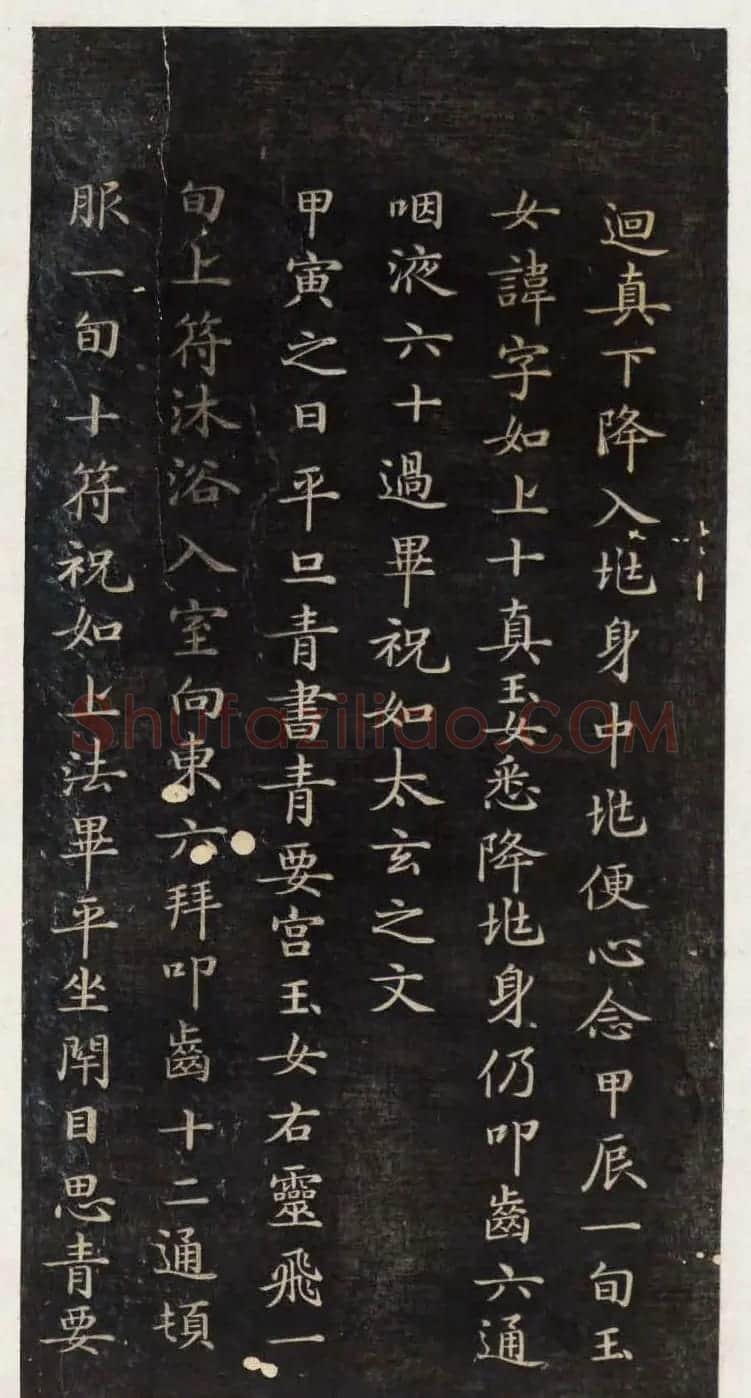 迴真下降入兆身中兆便心念甲辰一旬玉
女諱字如上十真玉女悉降兆身仍叩齒六通
咽液六十過畢祝如太玄之文
甲寅之日平旦青書青要宮玉女右靈飛一
旬上符沐浴入室向東六拜叩齒十二通頓
服一旬十符祝如上法畢平坐閇目思青要
Shufaziliao.COM